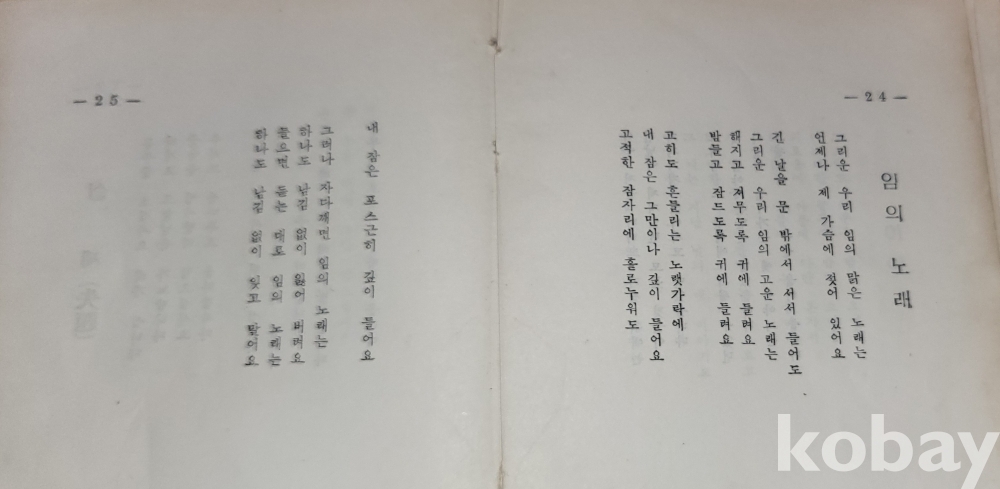 — 24 —
임의 노래
그리운 우리 임의 맑은 노래는
언제나 제 가슴에 젖어 있어요
긴 날을 문 밖에서 서서 들어도
그리운 우리 임의 고운 노래는
해지고 저무도록 귀에 들려요
밤들고 잠드도록 귀에 들려요
고히도 흔들리는 노랫가락에
내 잠은 그만이나 깊이 들어요
고적한 잠자리에 홀로누워도
— 25 —
내 잠은 포스근히 깊이 들어요
그러나 자다깨면 임의 노래는
하나도 남김 없이 잃어 버려요
들으면 듣는 대로 임의 노래는
하나도 남김 없이 잊고 말어요
kobay